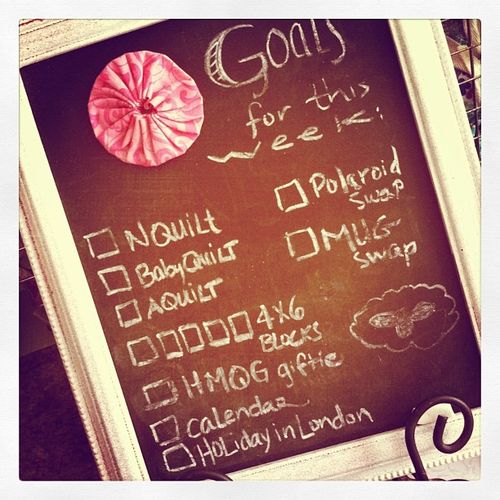 Goals
for this
week:
Polaroid
swap
MUG
swap
NQUILT
BabyQUILT
AQUILT
4x6
BLOCKS
HMQG giftie
calendar
Holiday in London